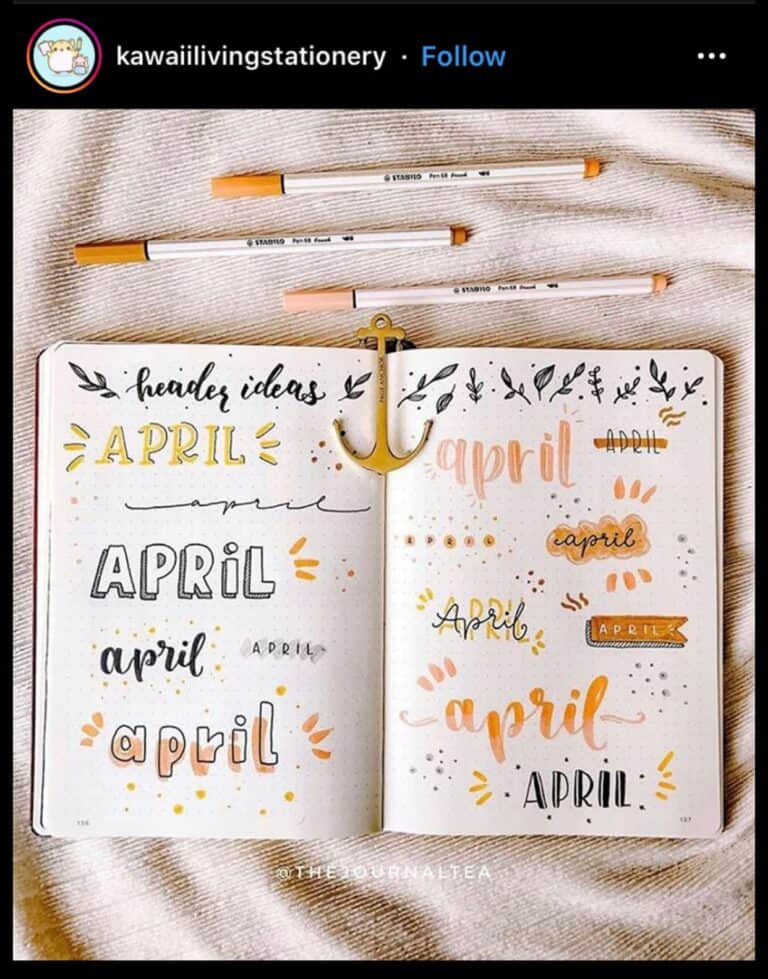 kawaiilivingstationery · Follow
STABILO Pen 68
STABILO Pen 68
STABILO Pen 68
PAGE ANCHOR
header ideas
APRIL
april
APRiL
april
APRIL
april
136
april
APRIL
APRIL
april
APRIL
April
APRIL
april
APRIL
137
@THEJOURNALTEA